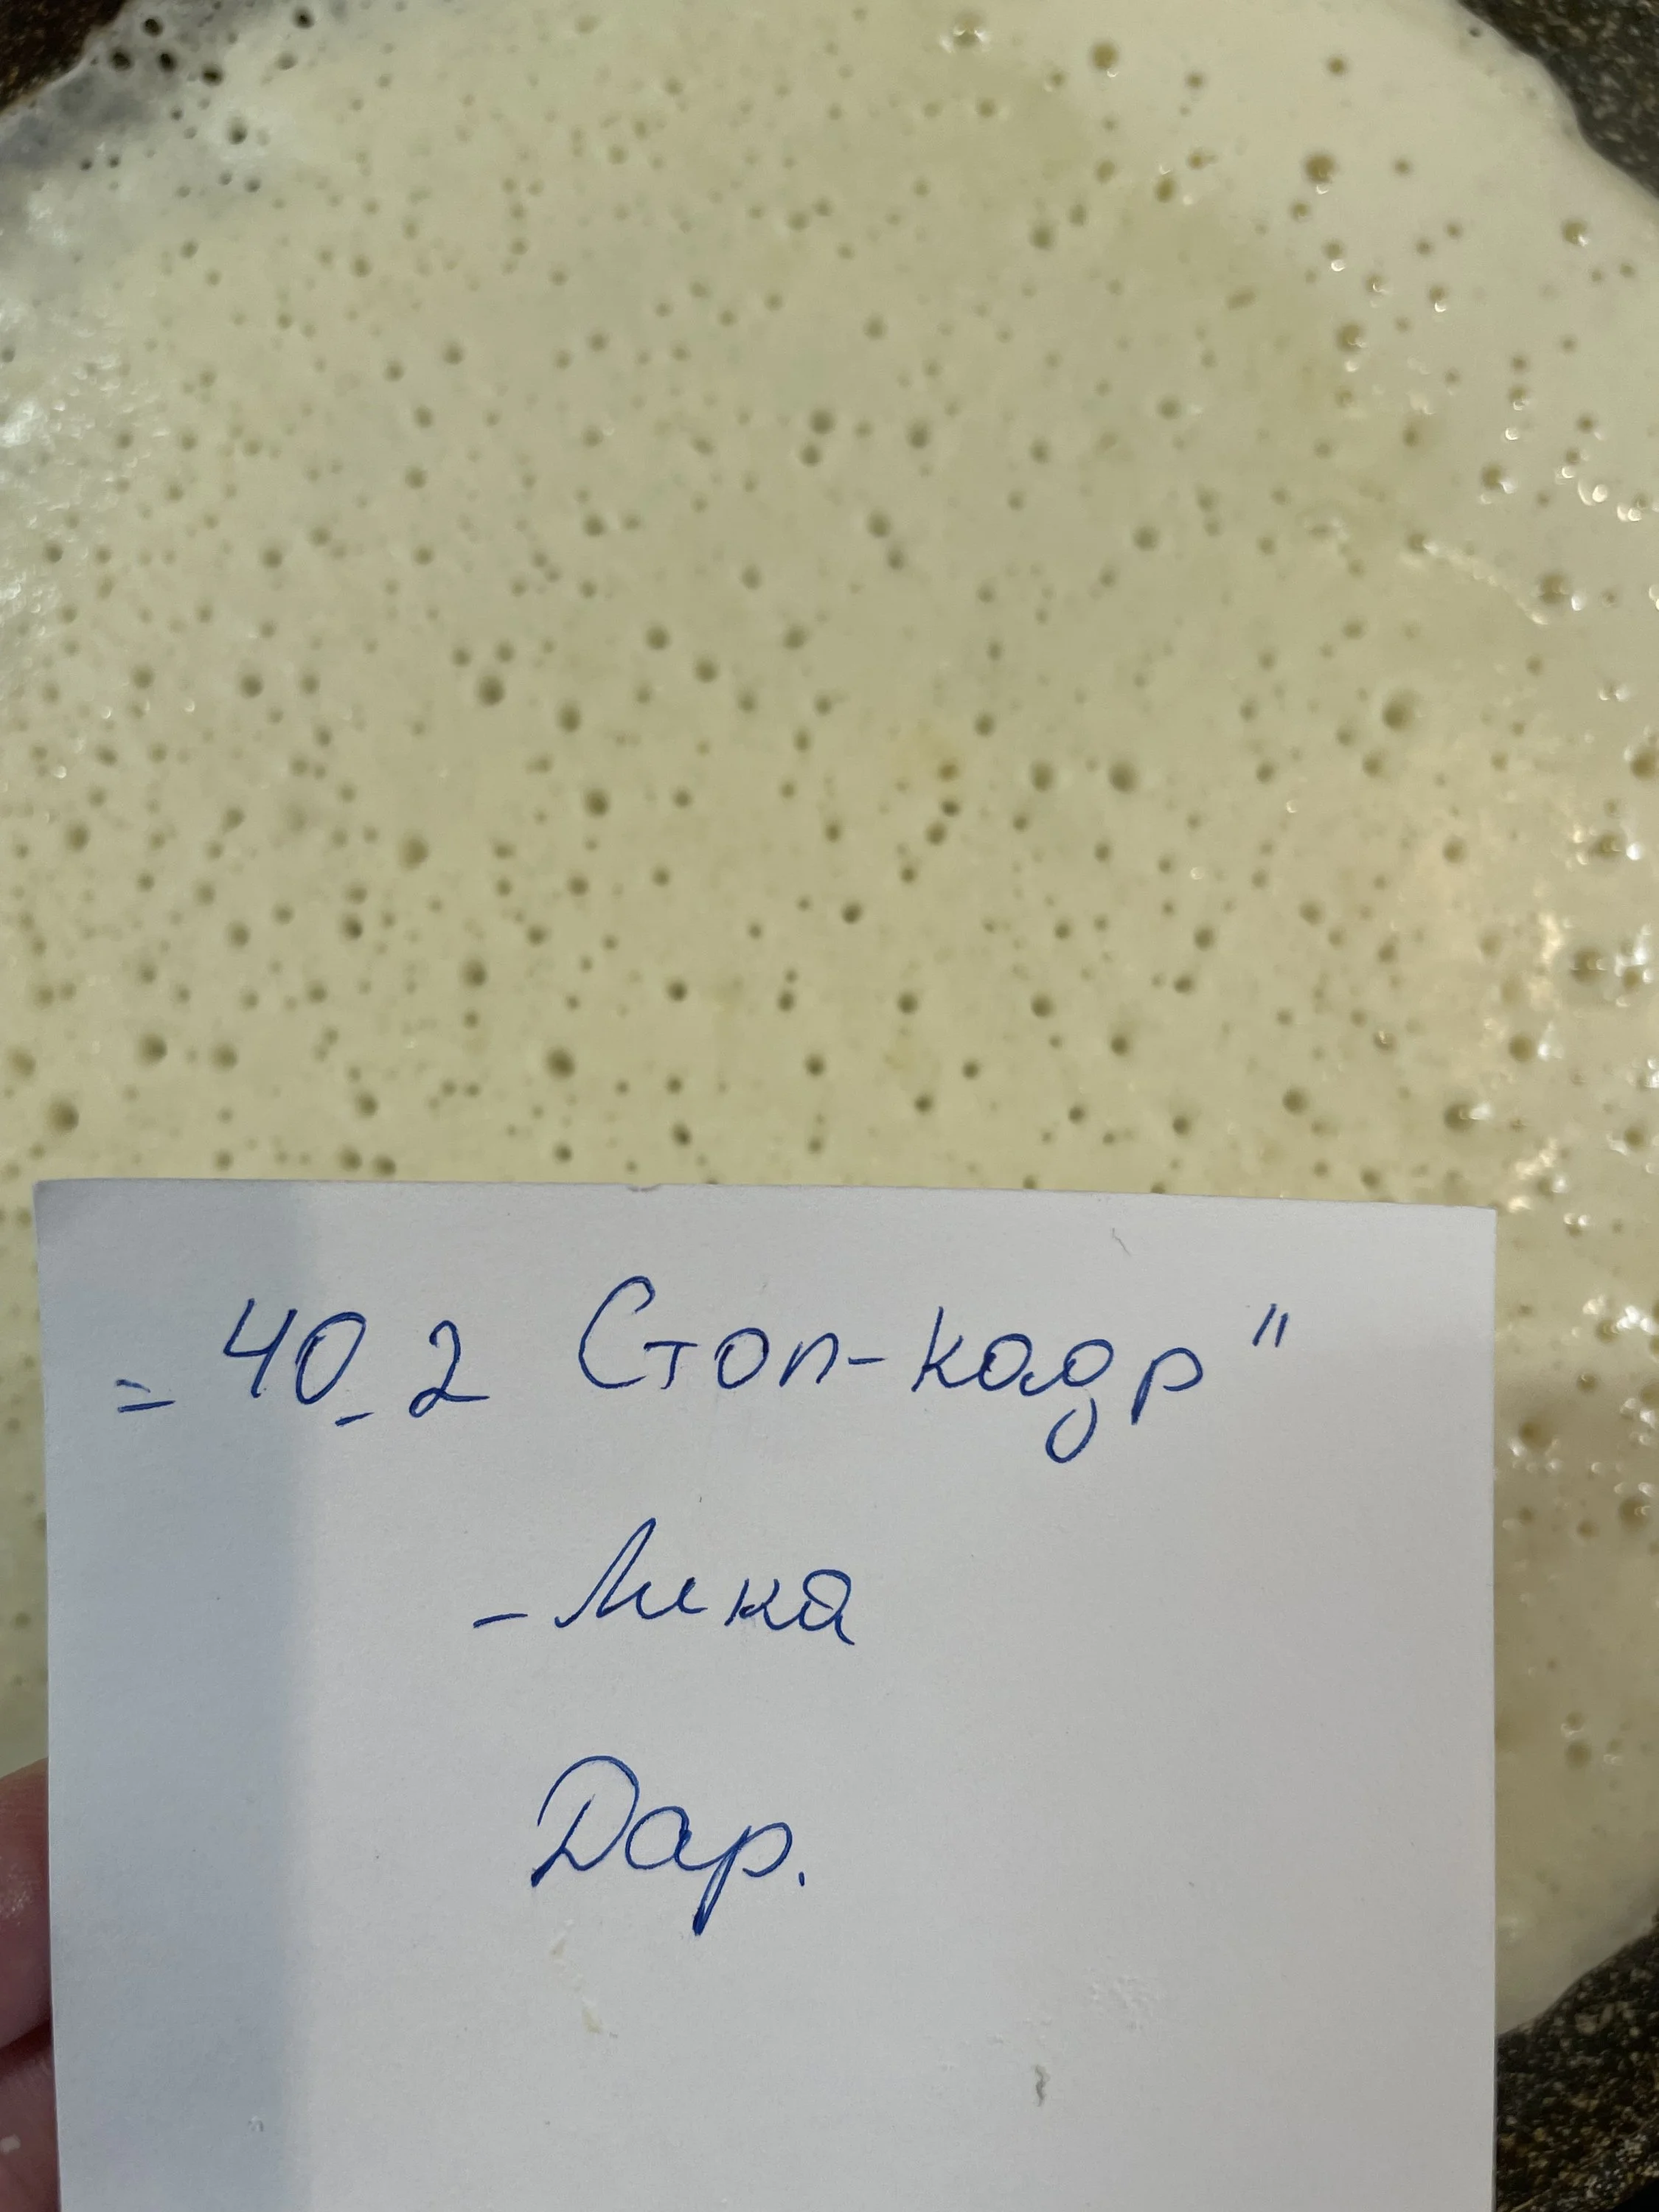 = 40_2 Стоп-кадр"
- Лика
Дар.